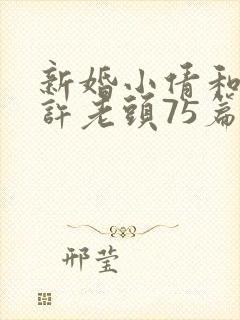 新婚小倩和
許老頭75篇
邢莹